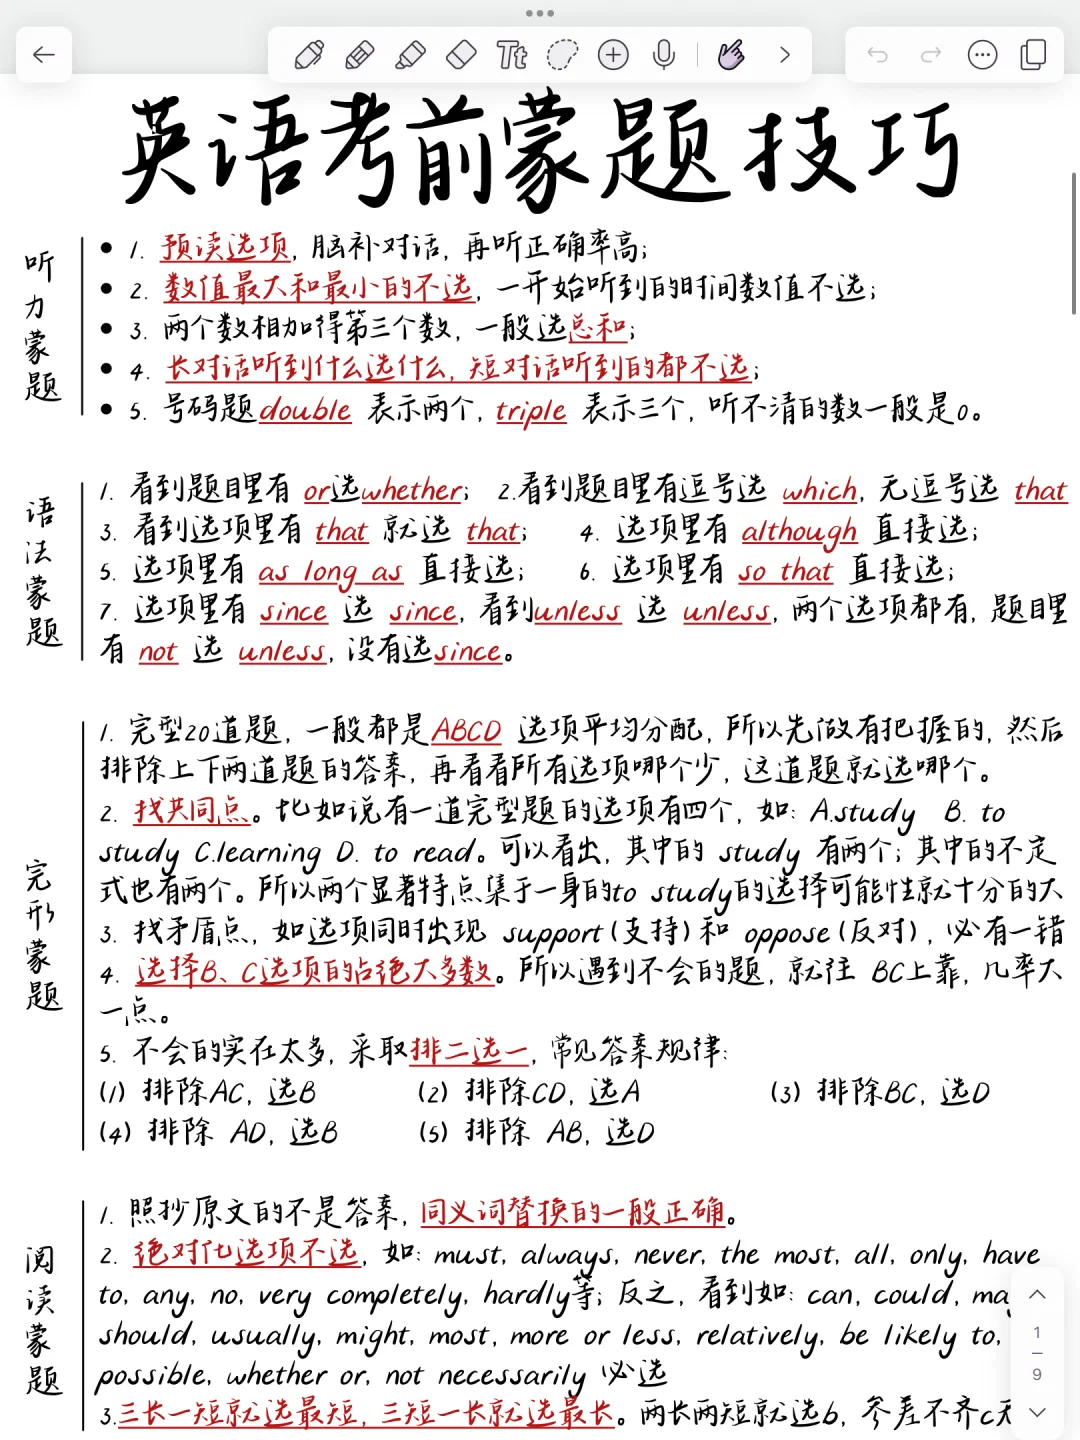 英语考前蒙题技巧
听力蒙题
1. 预读选项, 脑补对话, 再听正确率高;
2. 数值最大和最小的不选, 一开始听到的时间数值不选;
3. 两个数相加得第三个数, 一般选总和;
4. 长对话听到什么选什么, 短对话听到的都不选;
5. 号码题double 表示两个, triple 表示三个, 听不清的数一般是0。
语法蒙题
1. 看到题目里有 or选whether; 2.看到题目里有逗号选 which, 无逗号选 that
3. 看到选项里有 that 就选 that; 4. 选项里有 although 直接选;
5. 选项里有 as long as 直接选; 6. 选项里有 so that 直接选;
7. 选项里有 since 选 since, 看到unless 选 unless, 两个选项都有, 题目里
有 not 选 unless, 没有选since。
完形蒙题
1. 完型20道题, 一般都是ABCD 选项平均分配, 所以先做有把握的, 然后
排除上下两道题的答案, 再看看所有选项哪个少, 这道题就选哪个。
2. 找共同点。比如说有一道完型题的选项有四个, 如: A.study B. to
study C.learning D. to read。可以看出, 其中的 study 有两个; 其中的不定
式也有两个。所以两个显著特点集于一身的to study的选择可能性就十分的大
3. 找矛盾点, 如选项同时出现 support (支持) 和 oppose (反对), 必有一错
4. 选择B、C选项的占绝大多数。所以遇到不会的题, 就往 BC上靠, 几率大
一点。
5. 不会的实在太多, 采取排二选一, 常见答案规律:
(1) 排除AC, 选B (2) 排除CD, 选A (3) 排除BC, 选D
(4) 排除 AD, 选B (5) 排除 AB, 选D
阅读蒙题
1. 照抄原文的不是答案, 同义词替换的一般正确。
2. 绝对化选项不选, 如: must, always, never, the most, all, only, have
to, any, no, very completely, hardly等; 反之, 看到如: can, could, ma
should, usually, might, most, more or less, relatively, be likely to,
possible, whether or, not necessarily 必选
3.三长一短就选最短, 三短一长就选最长。两长两短就选b, 参差不齐c无
1
9